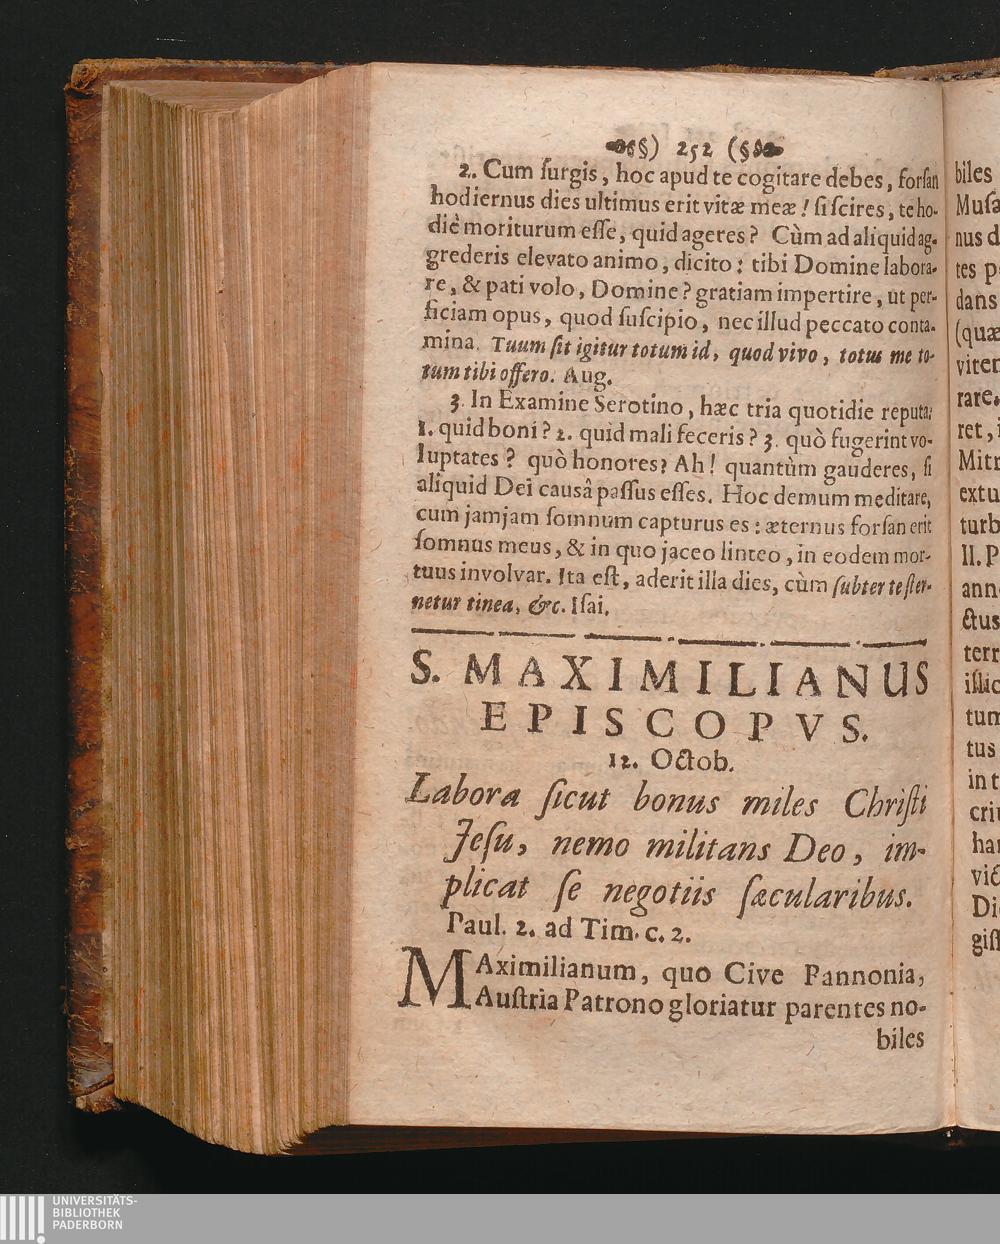 §) 252 (§
2. Cum ſurgis, hoc apud te cogitare debes, forſan
hodiernus dies ultimus erit vitæ meæ! ſi ſcires, te ho-
diè moriturum eſſe, quid ageres? Cùm ad aliquid ag-
grederis elevato animo, dicito: tibi Domine labora-
re, & pati volo, Domine? gratiam impertire, ut per-
ficiam opus, quod ſuſcipio, nec illud peccato conta-
mina. Tuum ſit igitur totum id, quod vivo, totus me to-
tum tibi offero. Aug.
3. In Examine Serotino, hæc tria quotidie reputa:
1. quid boni? 2. quid mali feceris? 3. quò fugerint vo-
luptates? quò honores? Ah! quantùm gauderes, ſi
aliquid Dei causâ paſſus eſſes. Hoc demum meditare,
cum jamjam ſomnum capturus es: æternus forſan erit
ſomnus meus, & in quo jaceo linteo, in eodem mor-
tuus involvar. Ita eſt, aderit illa dies, cùm ſubter te ſter-
netur tinea, &c. Iſai.
S. MAXIMILIANUS
EPISCOPVS.
12. Octob.
Labora ſicut bonus miles Chriſti
Jeſu, nemo militans Deo, im-
plicat ſe negotiis ſæcularibus.
Paul. 2. ad Tim. c. 2.
MAximilianum, quo Cive Pannonia,
Auſtria Patrono gloriatur parentes no-
biles
biles
nus d
tes p
dans
(quæ
rare.
ret,
extu
turb
II. P
tus
in t
UNIVERSITÄTS-
BIBLIOTHEK
PADERBORN